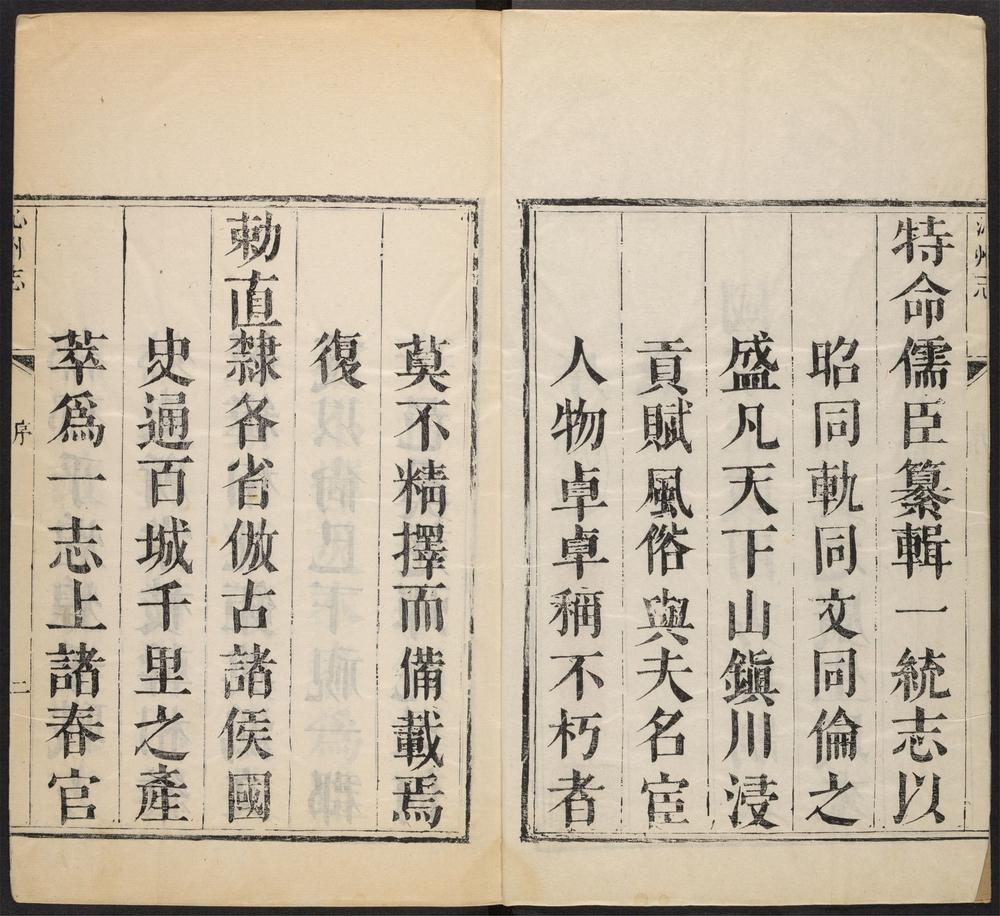 特命儒臣纂輯一統志以
昭同軌同文同倫之
盛凡天下山鎮川浸
貢賦風俗與夫名宦
人物卓卓稱不朽者
莫不精擇而備載焉
復
勅直隸各省倣古諸侯國
史通百城千里之產
萃爲一志上諸春官
州志
序
二